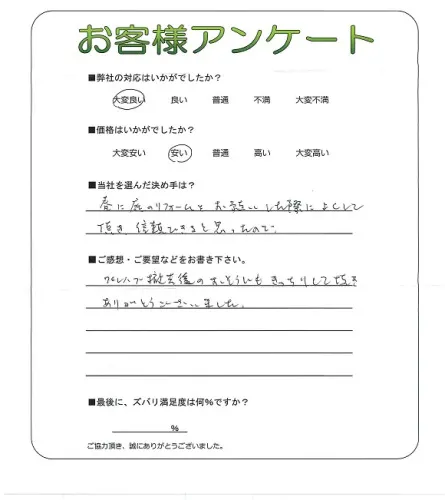 お客様アンケート
■弊社の対応はいかがでしたか?
大変良い 良い 普通 不満 大変不満
■価格はいかがでしたか?
大変安い 安い 普通 高い 大変高い
■当社を選んだ決め手は?
春に庭のリフォームを お願いした際によくして
頂き、信頼できると思ったので。
■ご感想・ご要望などをお書き下さい。
プレハブ撤去後の きっちりして頂き
ありがとうございました。
■最後に、ズバリ満足度は何%ですか?
%
ご協力頂き、誠にありがとうございました。